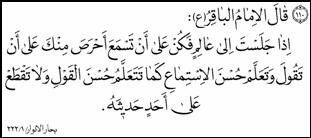 (١١٠) قَالَ الإِمَامُ البَاقِرُ(ع):
إِذَا جَلَسْتَ اِلىٰ عَالِمٍ فَكُنْ عَلىٰ أَنْ تَسْمَعَ أَحْرَصَ مِنْكَ عَلىٰ أَنْ
تَقُولَ وَتَعَلَّمْ حُسْنَ الاِسْتِمَاعِ كَمَا تَتَعَلَّمُ حُسْنَ القَوْلِ وَلَا تَقْطَعْ
عَلىٰ أَحَدٍ حَدِيثَهُ.
بحار الانوار ٢٢٢/١